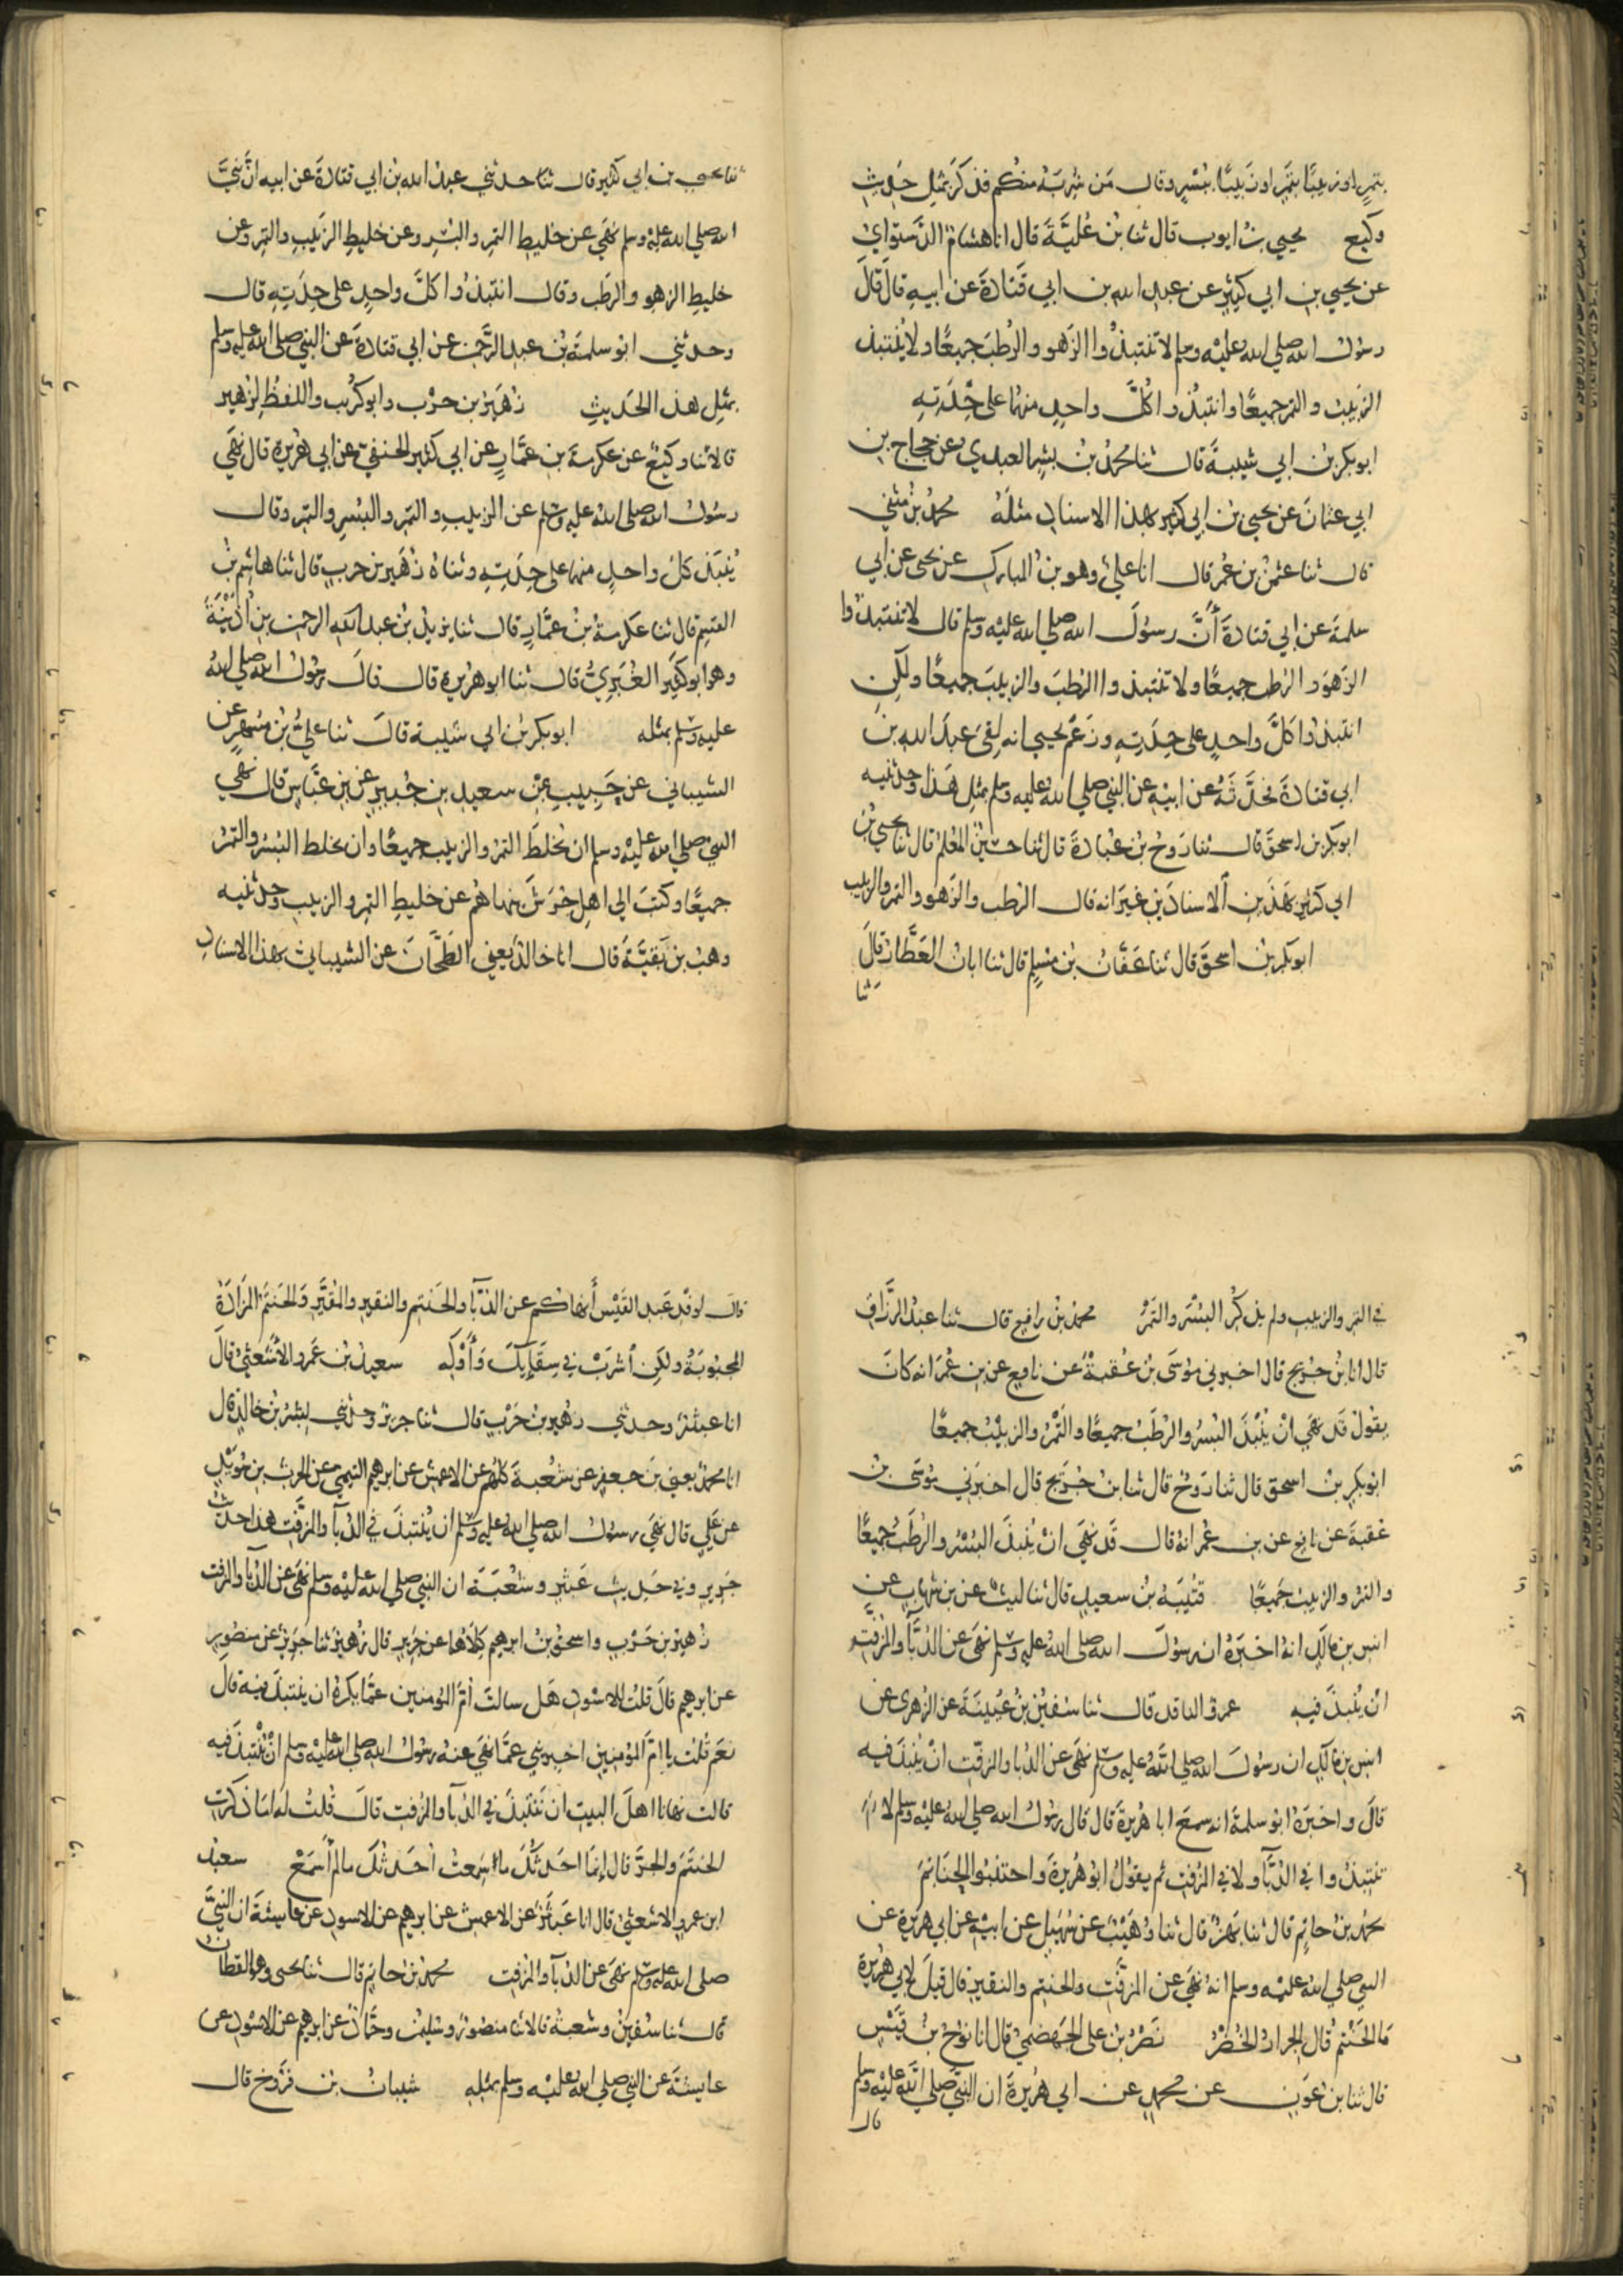 بتمر او زبيبًا بتمر او زبيبًا ببسر وقال من شربه منكم فذكر بمثل حديث
وكيع يحيى بن ايوب قال ثنا بن علية قال انا هشام الدستواي
عن يحيى بن ابي كثير عن عبد الله بن ابي قتادة عن ابيه قال قال
رسول الله صلى الله عليه وسلم لا تنتبذوا الزهو والرطب جميعًا ولا تنتبذوا
الزبيب والتمر جميعًا وانتبذوا كل واحد منهما على حدته
ابو بكر بن ابي شيبة قال ثنا محمد بن بشر العبدي عن حجاج بن
ابي عثمان عن يحيى بن ابي كثير بهذا الاسناد مثله محمد بن مثنى
قال ثنا عثمن بن عمر قال انا علي وهو بن المبارك عن يحيى عن ابي
سلمة عن ابي قتادة أن رسول الله صلى الله عليه وسلم قال لا تنتبذوا
الزهو والرطب جميعًا ولا تنتبذوا الرطب والزبيب جميعًا ولكن
انتبذوا كل واحد على حدته وزعم يحيى انه لقى عبد الله بن
ابي قتادة فحدثه عن ابيه عن النبي صلى الله عليه وسلم بمثل هذا وحدثنيه
ابو بكر بن اسحق قال ثنا روح بن عبادة قال ثنا حسين المعلم قال ثنا يحيى بن
ابي كثير بهذين الاسنادين غير انه قال الرطب والزهو والتمر والزبيب
ابو بكر بن اسحق قال ثنا عفان بن مسلم قال ثنا ابان العطار قال
ثنا
ثنا يحيى بن ابي كثير قال ثنا حدثني عبد الله بن ابي قتادة عن ابيه ان نبي
الله صلى الله عليه وسلم نهى عن خليط التمر والبسر وعن خليط الزبيب والتمر وعن
خليط الزهو والرطب وقال انتبذوا كل واحد على حدته قال
وحدثني ابو سلمة بن عبد الرحمن عن ابي قتادة عن النبي صلى الله عليه وسلم
بمثل هذا الحديث زهير بن حرب وابو كريب واللفظ لزهير
قالا ثنا وكيع عن عكرمة بن عمار عن ابي كثير الحنفي عن ابي هريرة قال نهى
رسول الله صلى الله عليه وسلم عن الزبيب والتمر والبسر والتمر وقال
ينبذ كل واحد منهما على حدته وثناه زهير بن حرب قال ثنا هاشم بن
القسم قال ثنا عكرمة بن عمار قال ثنا يزيد بن عبد الله الرحمن بن اذينة
وهو ابو كثير الغبري قال ثنا ابو هريرة قال قال رسول الله صلى الله
عليه وسلم بمثله ابو بكر بن ابي شيبة قال ثنا علي بن مسهر عن
الشيباني عن حبيب عن سعيد بن جبير عن بن عباس قال نهى
النبي صلى الله عليه وسلم ان يخلط التمر والزبيب جميعًا وان يخلط البسر والتمر
جميعًا وكتب الى اهل جرش ينهاهم عن خليط التمر والزبيب وحدثنيه
وهب بن بقية قال انا خالد يعني الطحان عن الشيباني بهذا الاسناد
في التمر والزبيب ولم يذكر البسر والتمر محمد بن رافع قال ثنا عبد الرزاق
قال انا بن جريج قال اخبرني موسى بن عقبة عن نافع عن بن عمر انه كان
يقول قد نهي ان ينبذ البسر والرطب جميعًا والتمر والزبيب جميعًا
ابو بكر بن اسحق قال ثنا روح قال ثنا بن جريج قال اخبرني موسى بن
عقبة عن نافع عن بن عمر انه قال قد نهي ان ينبذ البسر والرطب جميعًا
والتمر والزبيب جميعًا قتيبة بن سعيد قال ثنا ليث عن بن شهاب عن
انس بن مالك انه اخبره ان رسول الله صلى الله عليه وسلم نهى عن الدبا والمزفت
ان ينبذ فيه عمرو الناقد قال ثنا سفين بن عيينة عن الزهري عن
انس بن مالك ان رسول الله صلى الله عليه وسلم نهى عن الدبا والمزفت ان ينبذ فيه
قال واخبره ابو سلمة انه سمع ابا هريرة قال قال رسول الله صلى الله عليه وسلم لا
تنتبذوا في الدبا ولا في المزفت ثم يقول ابو هريرة واجتنبوا الحناتم
محمد بن حاتم قال ثنا بهز قال ثنا وهيب عن سهيل عن ابيه عن ابي هريرة عن
النبي صلى الله عليه وسلم انه نهى عن المزفت والحنتم والنقير قال قيل لابي هريرة
ما الحنتم قال الجرار الخضر نصر بن على الجهضمي قال انا نوح بن قيس
قال ثنا بن عون عن محمد عن ابي هريرة ان النبي صلى الله عليه وسلم
قال
قال لوفد عبد القيس أنهاكم عن الدبا والحنتم والنقير والمقير والحنتم المزادة
المجبوبة ولكن اشرب في سقايك وأوكه سعيد بن عمرو الاشعثي قال
انا عبثر وحدثني زهير بن حرب قال ثنا جرير وحدثني بشر بن خالد قال
انا محمد يعني بن جعفر عن شعبة كلهم عن الاعمش عن ابرهيم التيمي عن الحرث بن سويد
عن علي قال نهى رسول الله صلى الله عليه وسلم ان ينتبذ في الدبا والمزفت هذا حديث
جرير وفي حديث عبثر وشعبة ان النبي صلى الله عليه وسلم نهى عن الدبا والمزفت
زهير بن حرب واسحق بن ابرهيم كلاهما عن جرير قال زهير ثنا جرير عن منصور
عن ابرهيم قال قلت للاسود هل سالت ام المومنين عما يكره ان ينتبذ فيه قال
نعم قلت يا ام المؤمنين اخبريني عما نهى عنه رسول الله صلى الله عليه وسلم ان ينتبذ فيه
قالت نهانا اهل البيت ان ننتبذ في الدبا والمزفت قال قلت له اما ذكرت
الحنتم والجر قال إنما احدثك ما سمعت أحدثك ما لم أسمع سعيد
ابن عمرو الاشعثي قال انا عبثر عن الاعمش عن ابرهيم عن الاسود عن عايشة ان النبي
صلى الله عليه وسلم نهى عن الدبا والمزفت محمد بن حاتم قال ثنا يحيى وهو القطان
قال ثنا سفين وشعبة قالا ثنا منصور وسليمن وحماد عن ابرهيم عن الاسود عن
عايشة عن النبي صلى الله عليه وسلم بمثله شيبان بن فروخ قال